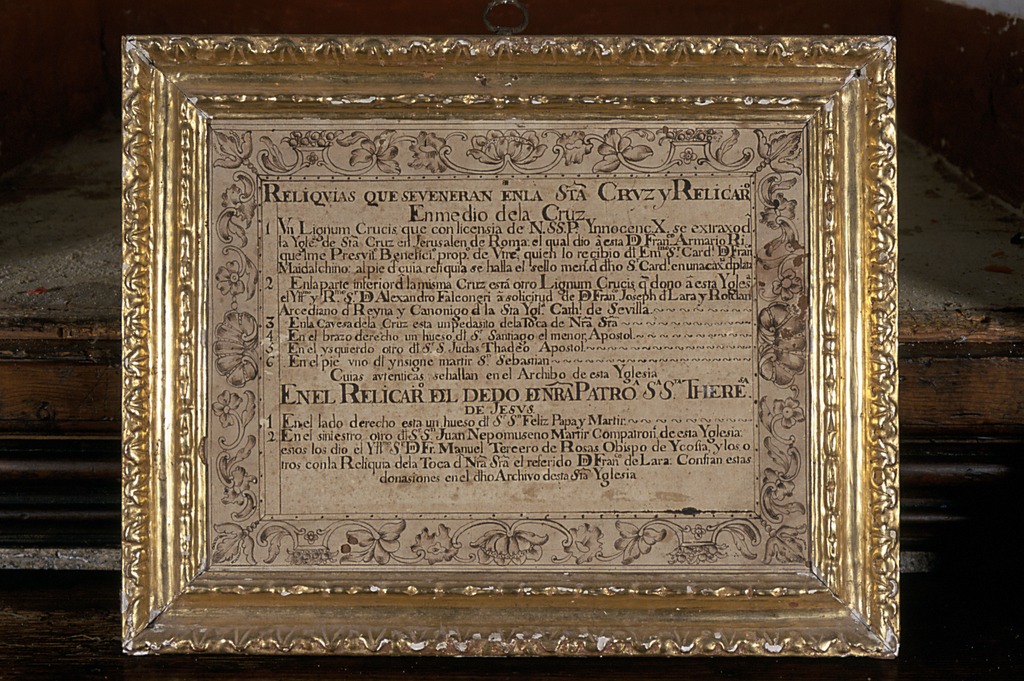 RELIQVIAS QUE SEVENERAN ENLA STÃ CRVZ y RELICARº
Enmedio dela Cruz
1 Vn Lignum Crucis que con licensia de N.SS.P. Ynnocenc.X, se extraxo d
la Ygle.ª de Stã. Cruz en Jerusalen de Roma: el qual dio à esta D. Fran.co Armario Ri,
quelme Presviº. Benefici.º prop.º de Vtre.ª quien lo recibio dl Em.mo S.r Card.l D. Fran
Maidalchino: al pie d cuia reliquia se halla el sello mens.º d dho S.r Card.l en una cax.ª d plata
2 Enla parte inferior d la misma Cruz está otro Lignum Crucis q donò à esta Ygles.ª
el Yll.mo y R.mo S.r D. Alexandro Falconeri à solicitud de D. Fran. Joseph d Lara y Roldan
Arcediano d Reyna y Canonigo d la Sta Ygl.ª Cath.l de Sevilla
3 Enla Cavesa dela Cruz esta un pedasito dela Toca de Nrã Srã
4 En el brazo derecho un hueso dl S.r Santiago el menor, Apostol
5 En el ysquierdo otro dl S.r S. Judas Thadeo Apostol
6 En el pie vno dl ynsigne martir S.n Sebastian
Cuias avtenticas sehallan en el Archibo de esta Yglesia
EN EL RELICARº DL DEDO D NRÃ PATRÕ.ª S.ª S.TA THERE.SA
DE JESVS.
1 En el lado derecho esta un hueso dl S.r S.n Feliz Papa y Martir
2 En el siniestro otro dl S.r S. Juan Nepomuseno Martir Compatron de esta Yglesia:
estos los dio el Yll.mo S.r D. Fr. Manuel Tercero de Rosas Obispo de Ycosia, y los o
tros con la Reliquia dela Toca d Nrã Srã el referido D. Fran.co de Lara: Constan estas
donasiones en el dho Archivo desta Stã Yglesia